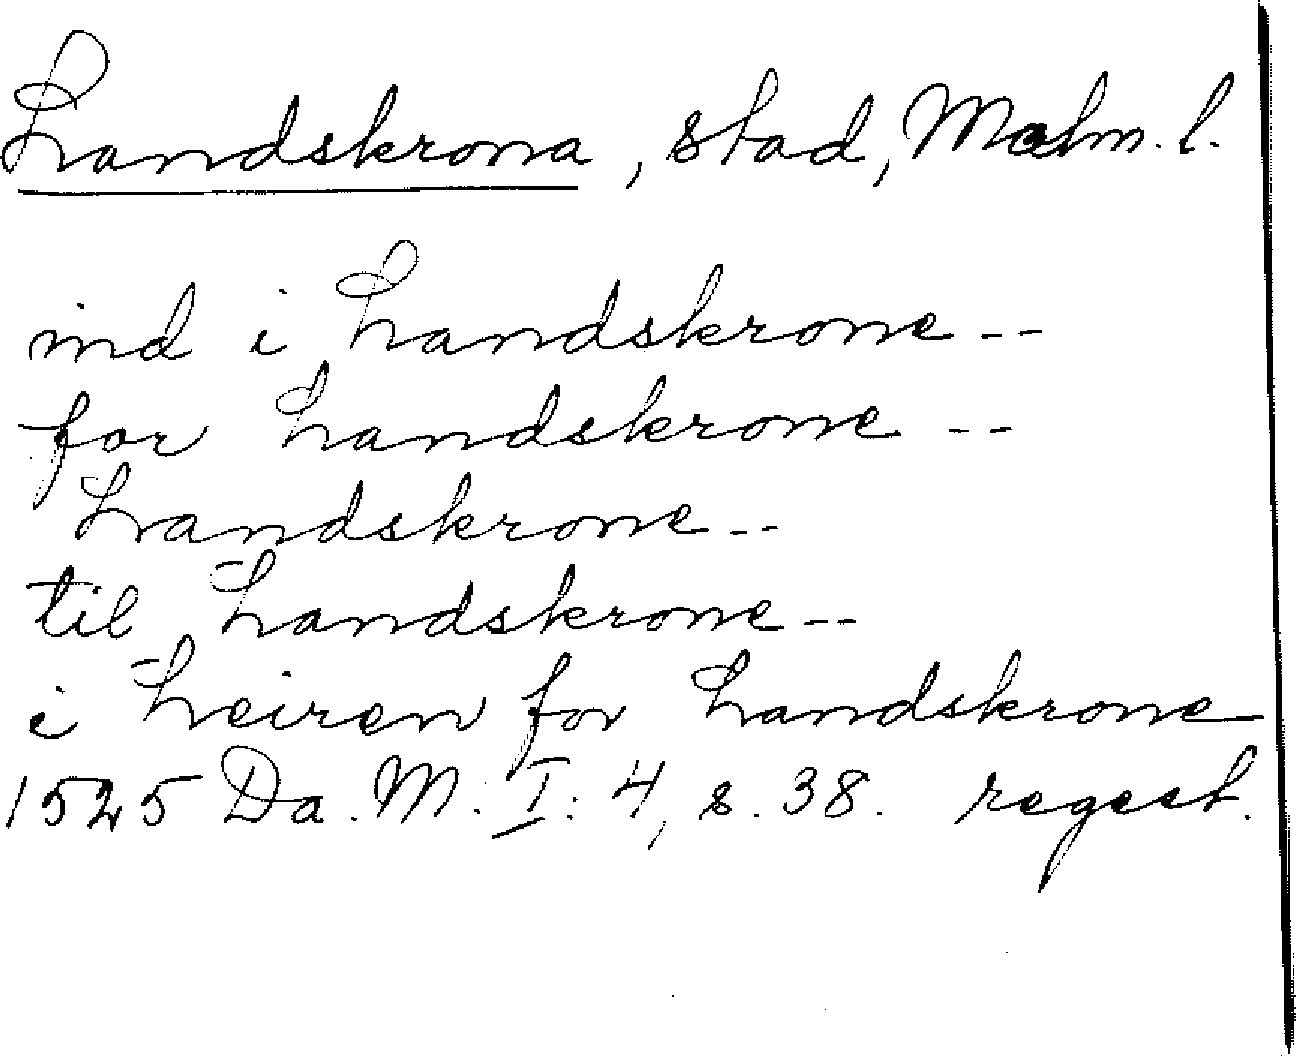 Landskrona, stad, Malm. l.
ind i Landskrone --
for Landskrone --
Landskrone --
til Landskrone --
i Leiren for Landskrone
1525 Da. M. I: 4, s. 38. regest.